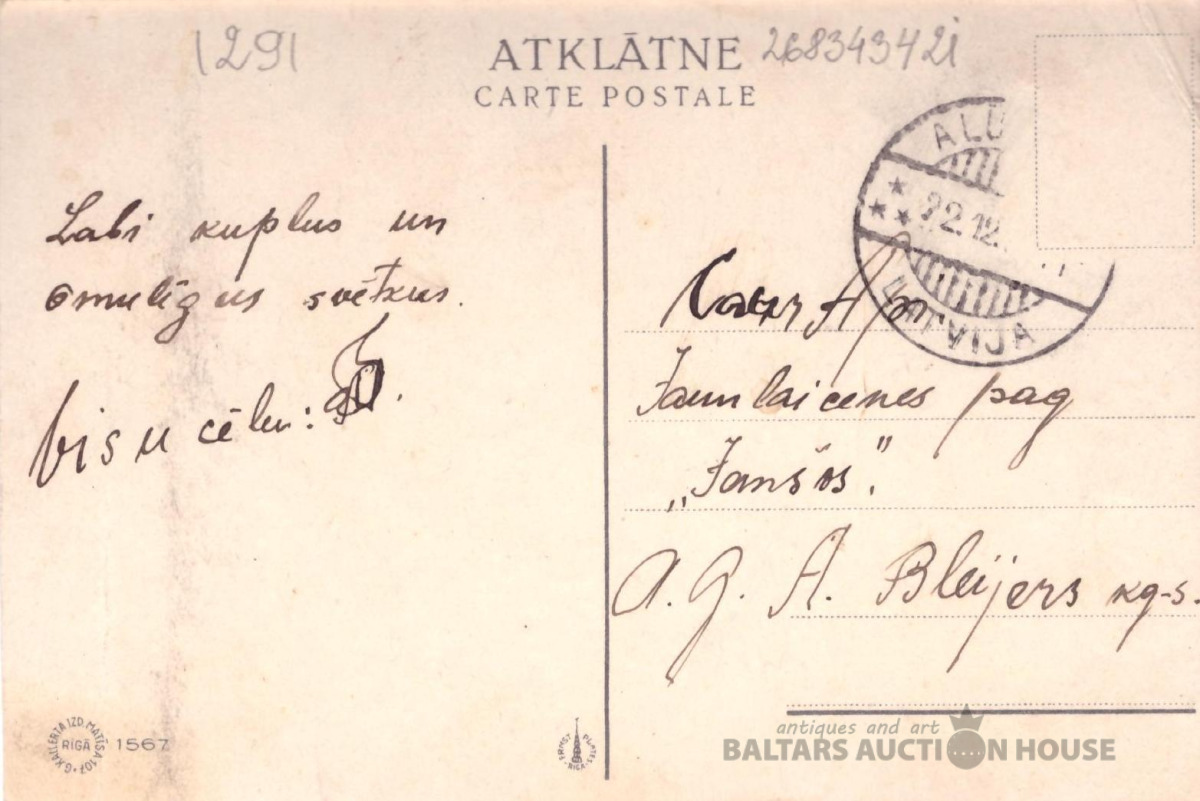 1291
ATKLĀTNE 268343421
CARTE POSTALE
ALŪ
22.12.
LATVIJA
Labi kuplus un
omulīgus svētkus.
visu cēlu:
Caur Ap
Jaunlaicenes pag
„Janšos”.
A. G. A. Bleijers kg-s.
G. KALLERTA IZD. MATĪSA 107
RĪGĀ
1567
ERNST PLATES
RIGA
antiques and art
BALTARS AUCTION HOUSE